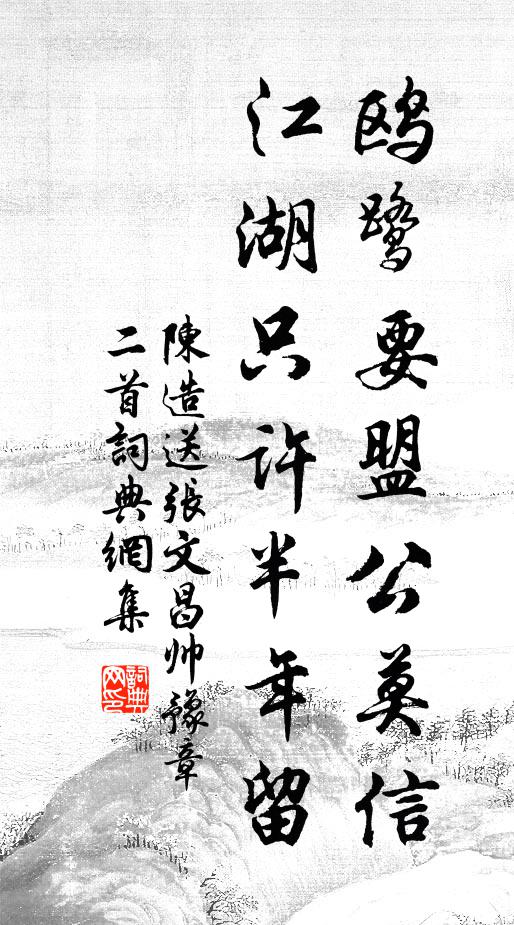 鸥鹭要盟公莫信
江湖只许半年留
陳造送張文昌帅豫章
二首詞典網集
詞典
网印